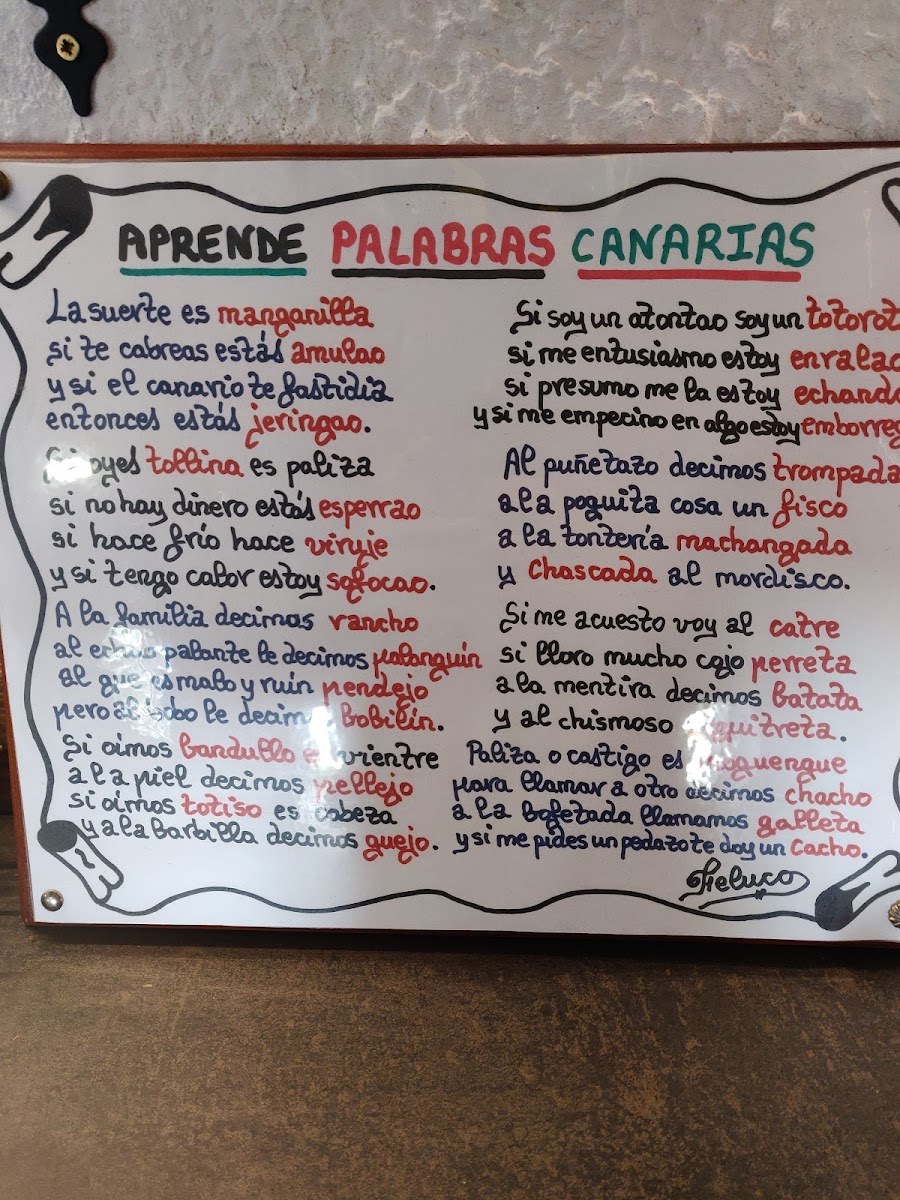 APRENDE PALABRAS CANARIAS
La suerte es manganilla
si te cabreas estás amulao
y si el canario te fastidia
entonces estás jeringao.
Si oyes tollina es paliza
si no hay dinero estás esperrao
si hace frío hace viruje
y si tengo calor estoy sofocao.
A la familia decimos rancho
al echao palante le decimos palanquín
al que es malo y ruín pendejo
pero al bobo le decimos bobilín.
Si oimos bandullo es vientre
a la piel decimos pellejo
si oimos totiso es cabeza
y a la barbilla decimos guejo.
Si soy un atontao soy un totorot
si me entusiasmo estoy enralao
si presumo me la estoy echando
y si me empecino en algo estoy emborreg
Al puñetazo decimos trompada
a la poquita cosa un fisco
a la tontería machangada
y Chascada al mordisco.
Si me acuesto voy al catre
si lloro mucho cojo perreta
a la mentira decimos batata
y al chismoso
Paliza o castigo es
para llamar a otro decimos chacho
a la bofetada llamamos galleta
y si me pides un pedazo te doy un Cacho.